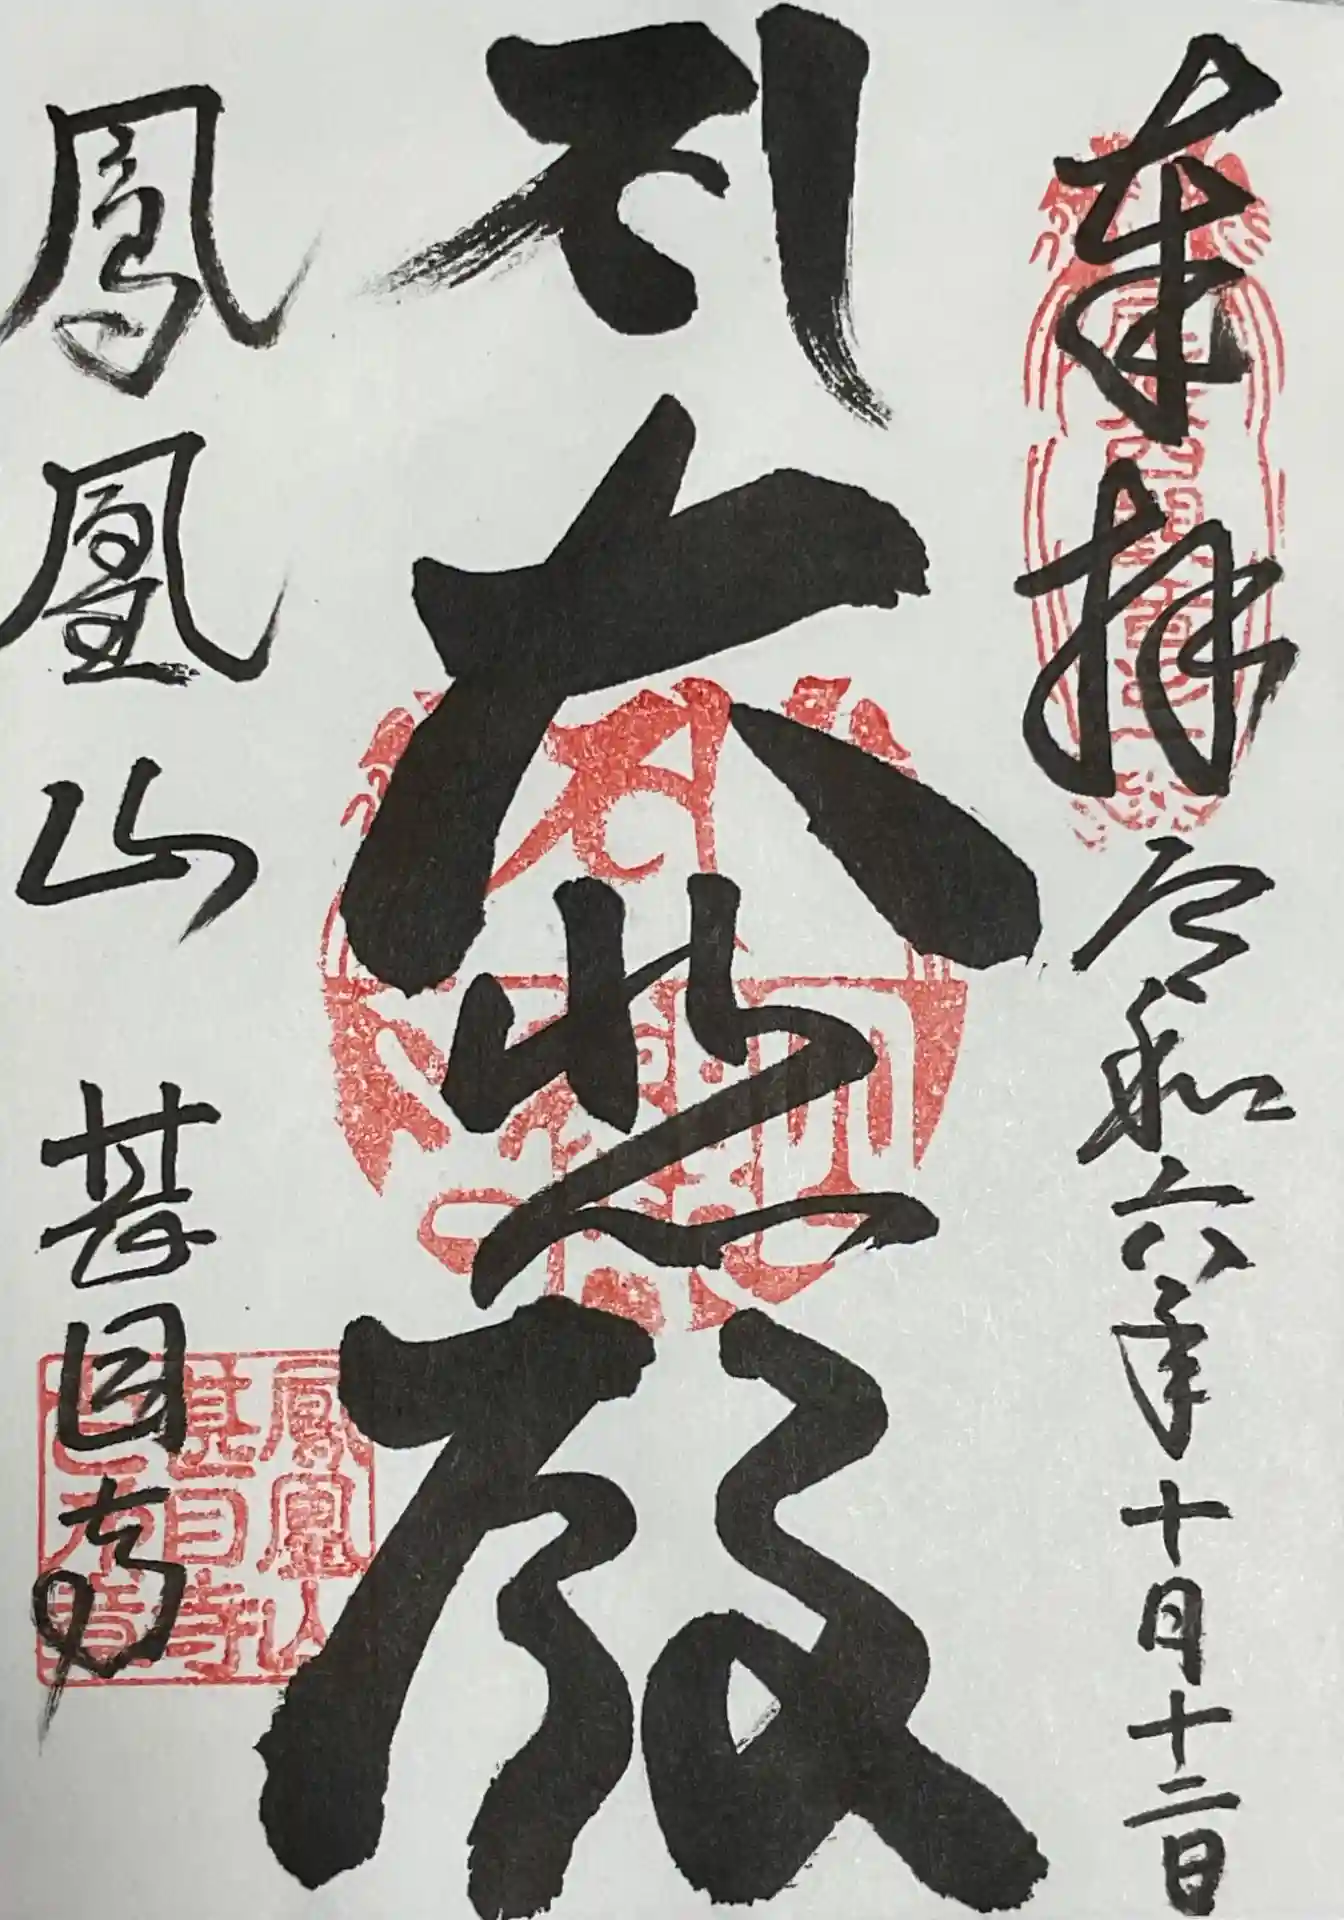 奉拝 令和六年十月十二日
𑖭 大悲殿
鳳凰山 甚目寺
鳳凰山
甚目寺